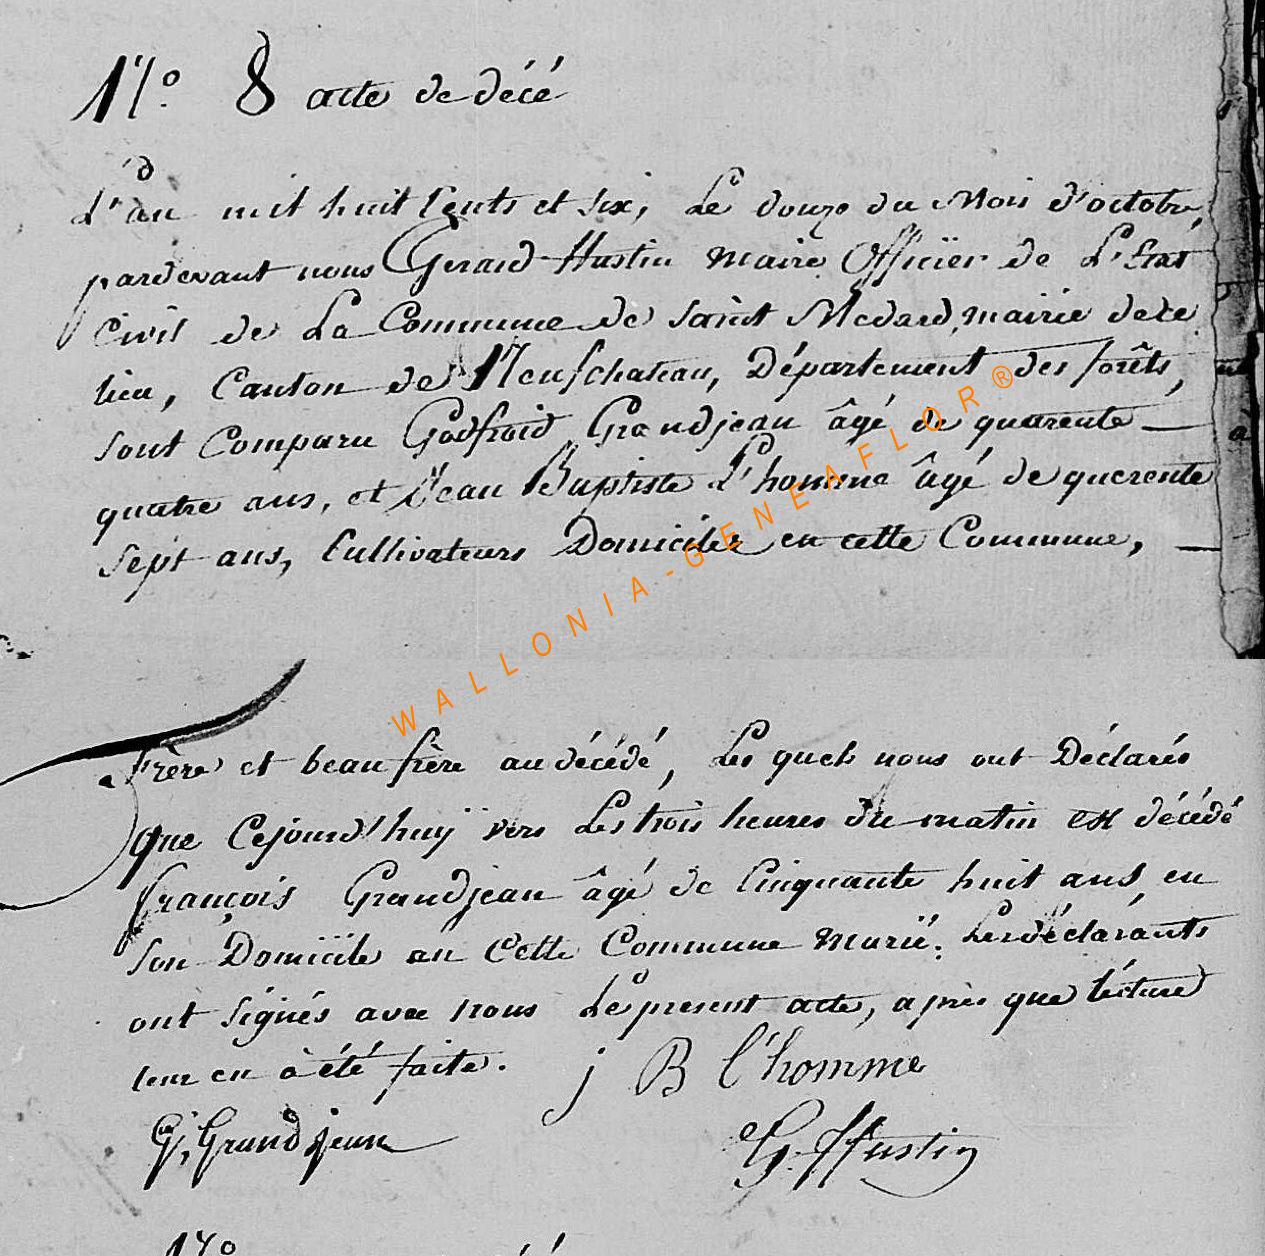 N.° 8 acte de décé
L'an mil huit Cents et six, Le douze du Mois d'octobre,
pardevant nous Gerard Hustin maire Officïer de L'Etat
Civil de La Commune de saint Medard, mairie de ce
lieu, Canton de Neufchateau, Département des forêts,
sont Comparu Godfroid Grandjean âgé de quarente —
quatre ans, et Jean Baptiste L'homme âgé de querente
sept ans, Cultivateurs Domiciles en cette Commune, —
WALLONIA-GENEAFLOR®
Frère et beau frère au décédé, Les quels nous ont Déclarés
que Cejourd'huÿ vers Les trois heures du matin est décédé
françois Grandjean âgé de Cinquante huit ans, en
son Domicile en Cette Commune Marié. Les déclarants
ont signés avec nous Le present acte, après que lécture
leur en à été faite. j B l'homme
G, Grandjean G. Hustin